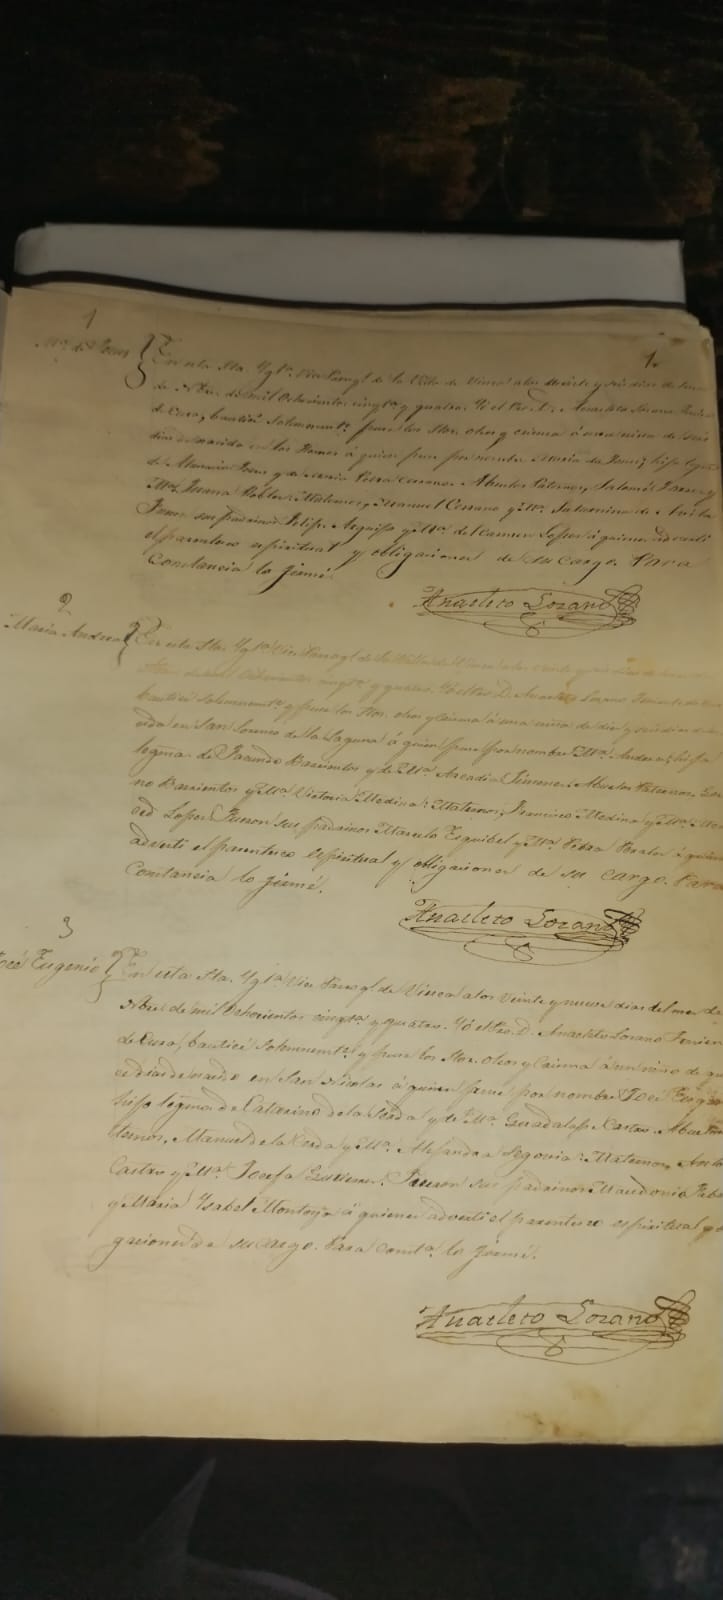 1
1.
Ma. de Jesus
En esta Sta. Ygla. Vice Parroql. de la Villa de Viesca a los veinte y seis dias de
de Nbre. de mil ochocientos cingta. y quatro. Yó el Pbro. D. Anacleto Lozano
de Cura, bauticé solemnemte. y puse los Stos. oleos y crisma á una niña de
dias de nacida en los Hornos á quien puse por nombre Maria de Jesus; hija
de y de Maria Petra Cerrano. Abuelos Paternos, Salomé
y Ma. Juana Robles: Maternos, Manuel Cerrano y Ma. Saturnina de Avila
Fueron sus padrinos Felipe y Ma. del Carmen Lopes á quienes adverti
el parentesco espiritual y obligaciones de su cargo. Para
constancia lo firmé.
Anacleto Lozano
2
Maria Andrea
En esta Sta. Ygla. Vice Parroql. de la Villa de Viesca a los veinte y
de mil ochocientos cingta. y quatro. Yó el Pbro. D. Anacleto Lozano Teniente de
bauticé solemnemte. y puse los Stos. oleos y crisma á una niña de diez y seis dias de
cida en San Lorenzo de la Laguna á quien puse por nombre Ma. Andrea; hija
legma. de Facundo Barrientos y de Ma. Arcadia Simenes. Abuelos Paternos,
no Barrientos y Ma. Victoria Medina: Maternos, Francisco Medina y Ma.
ced Lopes. Fueron sus padrinos Marcelo Esquibel y Ma. Petra á quienes
adverti el parentesco espiritual y obligaciones de su cargo. Para
constancia lo firmé.
Anacleto Lozano
3
José Eugenio
En esta Sta. Ygla. Vice Parroql. de Viesca a los veinte y nueve dias del mes de
Nbre. de mil ochocientos cingta. y quatro. Yó el Pbro. D. Anacleto Lozano Tenien
de Cura, bauticé solemnemte. y puse los Stos. oleos y crisma á un niño de
ce dias de nacido en San Nicolas á quien puse por nombre José
hijo legmo. de Catarino de la Serda y de Ma. Guadalupe Castro. Abuelos
ternos, Manuel de la Cerda y Ma. Alejandra Segovia: Maternos,
Castro y Ma. Josefa Gutierres. Fueron sus padrinos Macedonio
y Maria Ysabel Montoya á quienes adverti el parentesco espiritual y
gaciones de su cargo. Para consta. lo firmé.
Anacleto Lozano